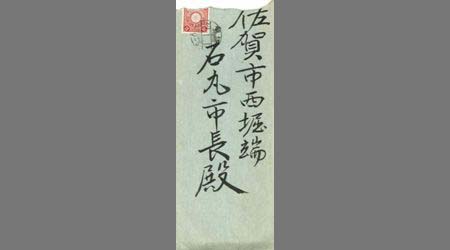 佐賀市西堀端
石丸市長殿